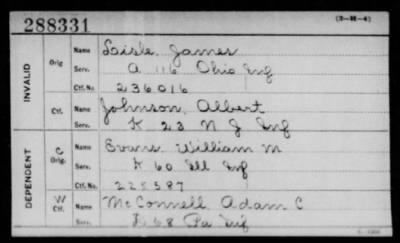 288331
(3—26—4)
INVALID
Orig
Name Loisle, James
Serv. A 116 Ohio Inf
Ctf. No. 236016
Ctf.
Name Johnson, Albert
Serv. K 23 N J Inf
DEPENDENT
C
Orig.
Name Evans, William M
Serv. K 60 Ill Inf
Ctf. No. 228587
W
Ctf.
Name McConnell Adam C
Serv. 68 Pa Inf